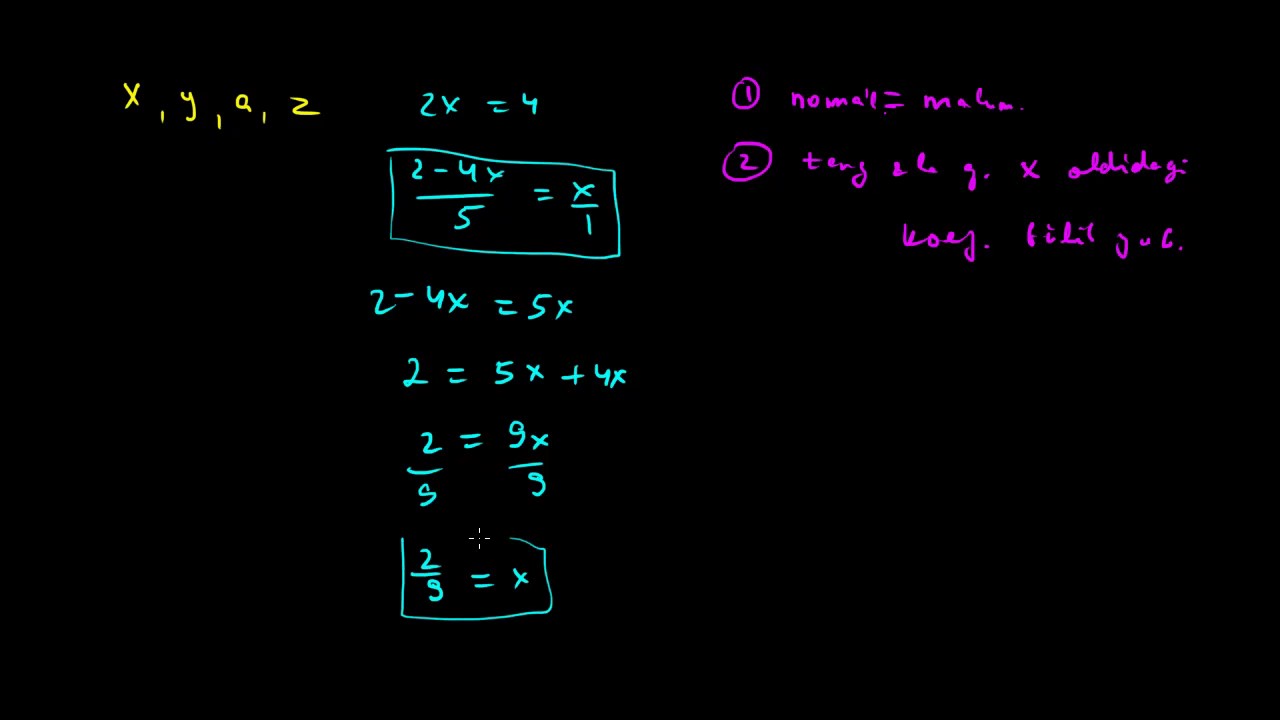 x, y, a, z
2x = 4
(2 - 4x)/5 = x/1
2 - 4x = 5x
2 = 5x + 4x
2/9 = 9x/9
2/9 = x
① noma'l = malum.
② teng x oldidagi
koef.